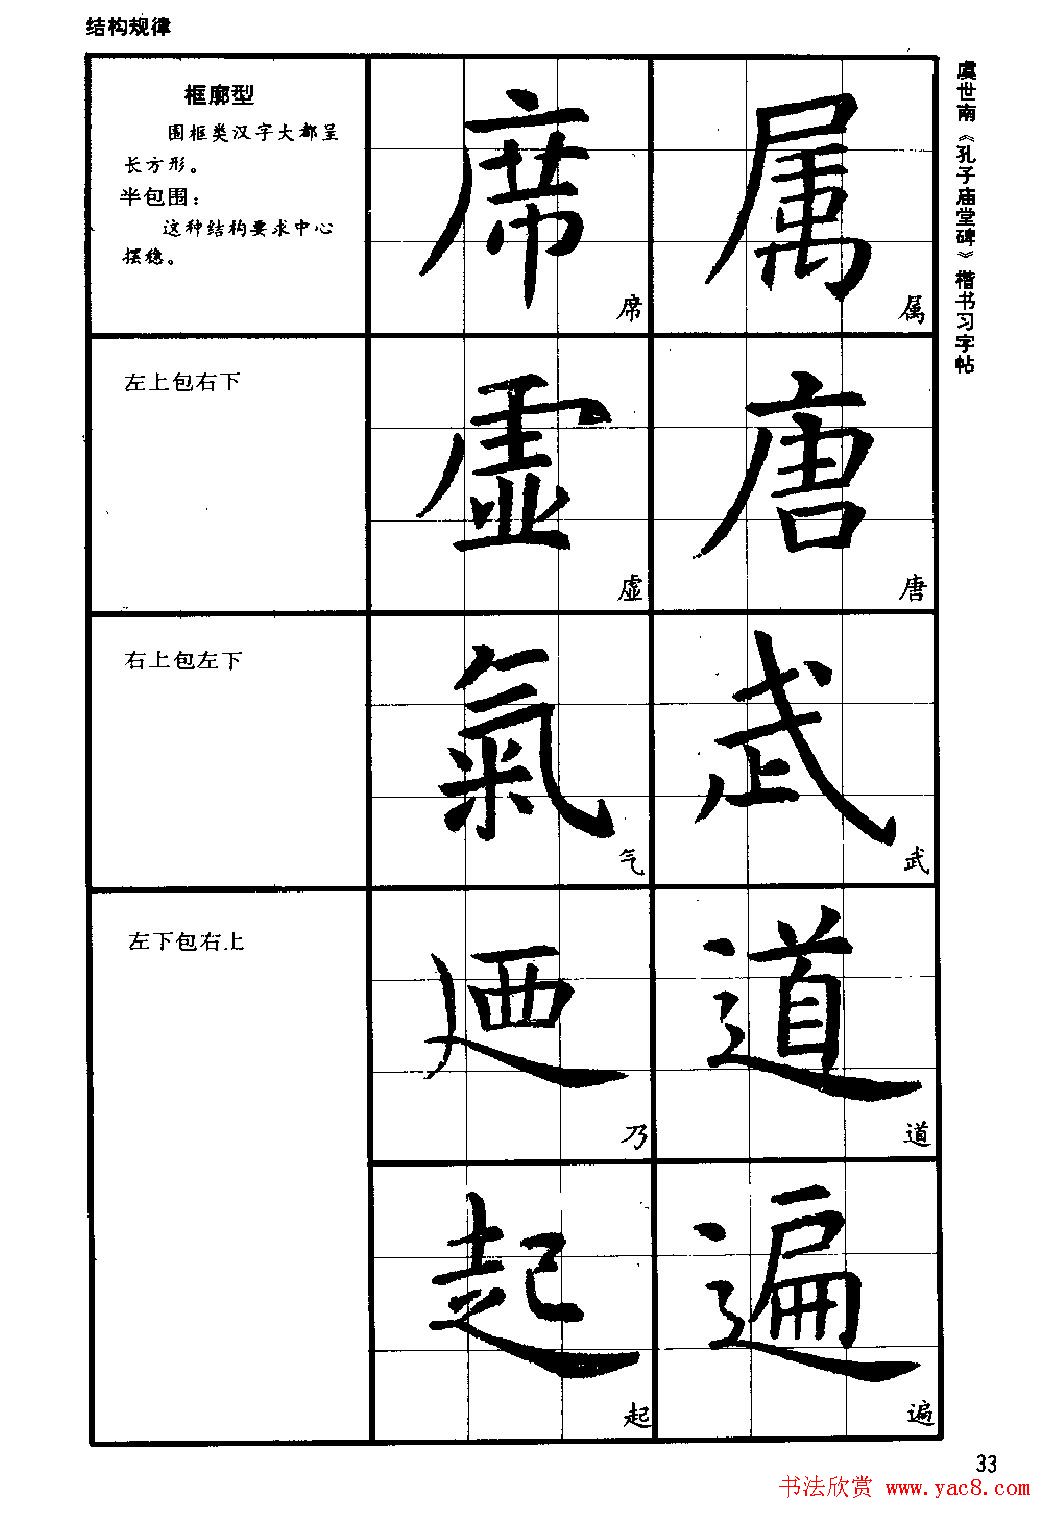 结构规律
框廓型
围框类汉字大都呈
长方形。
半包围：
这种结构要求中心
摆稳。
席 属
席 属
左上包右下
虚 唐
虚 唐
右上包左下
氣 武
气 武
左下包右上
迺 道
乃 道
起 遍
起 遍
虞世南《孔子庙堂碑》楷书习字帖
33
书法欣赏 www.yac8.com